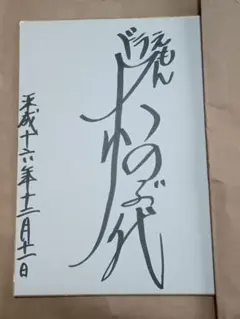 ドラえもん
大山のぶ代
平成十六年十二月十一日